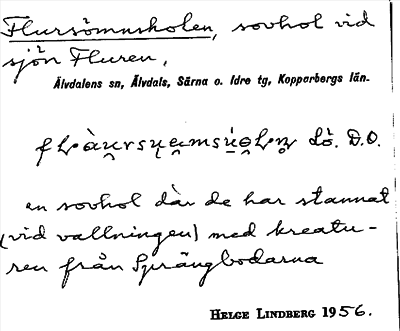 Flursömnskolen, sovhol vid
sjön Fluren,
Älvdalens sn, Älvdals, Särna o. Idre tg, Kopparbergs län.
Lö. D.O.
en sovhol där de har stannat
(vid vallningen) med kreatu-
ren från Sprängbodarna
HELGE LINDBERG 1956.